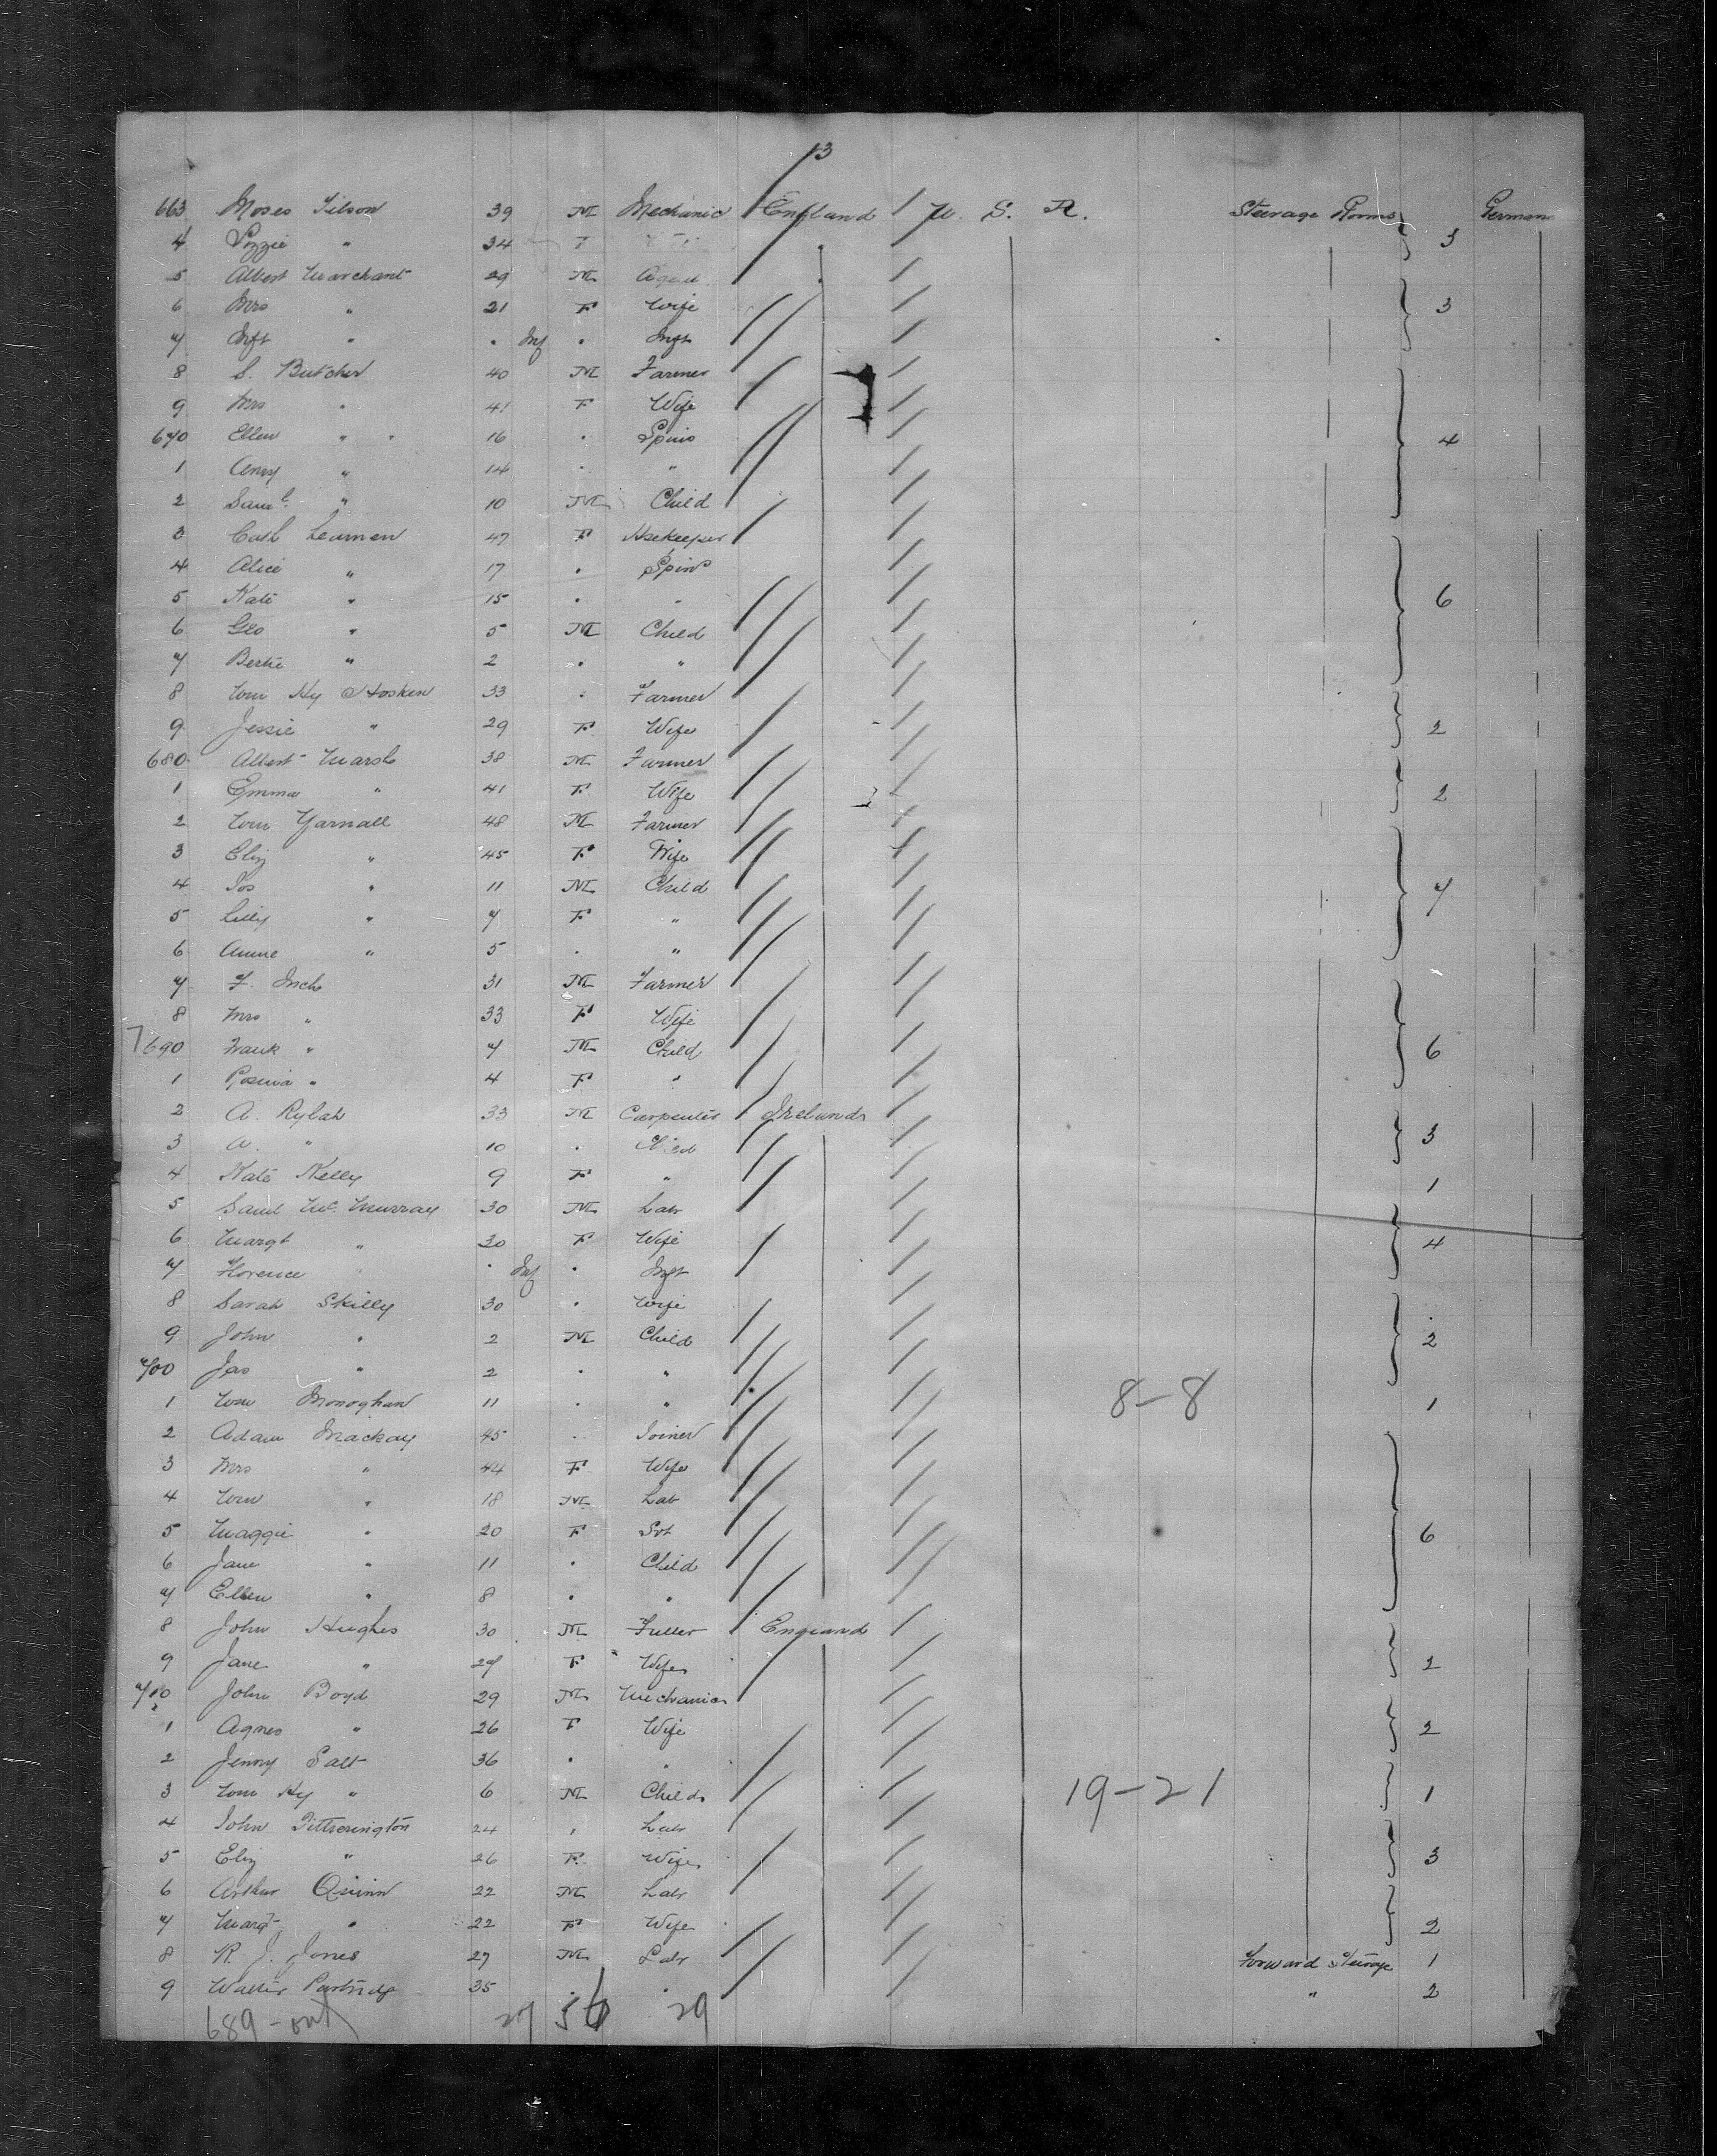 13
663 Moses Tilson 39 M Mechanic England U. S. A. Steerage Rooms Germans
4 Lizzie " 34 F 3
5 Albert Marchant 29 M Agent
6 Mrs " 21 F Wife 3
7 Inft " " Inf " Inft
8 S. Butcher 40 M Farmer
9 Mrs " 41 F Wife
670 Ellen " 16 " Spins 4
1 Amy " 14 " "
2 Saml. " 10 M Child
3 Cath Leamen 47 F Hsekeeper
4 Alice " 17 " Spins
5 Kate " 15 " " 6
6 Geo " 5 M Child
7 Bertie " 2 " "
8 Wm Hy Hosken 33 " Farmer
9 Jessie " 29 F Wife 2
680 Albert Marsh 38 M Farmer
1 Emma " 41 F Wife 2
2 Wm Yarnall 48 M Farmer
3 Eliz " 45 F Wife
4 Jos " 11 M Child 7
5 Lilly " 7 F "
6 Annie " 5 " "
7 F. Inch 31 M Farmer
8 Mrs " 33 F Wife
690 Frank " 7 M Child 6
1 Rosina " 4 F "
2 A. Rylah 33 M Carpenter Ireland
3 A. " 10 " Child 3
4 Kate Kelly 9 F " 1
5 Saml Mc Murray 30 M Labr
6 Margt " 30 F Wife 4
7 Florence " " Inf " Inft
8 Sarah Skilly 30 " Wife
9 John " 2 M Child 2
700 Jas " 2 " "
1 Wm Monoghan 11 " " 8-8 1
2 Adam Mackay 45 " Joiner
3 Mrs " 44 F Wife
4 Wm " 18 M Lab
5 Maggie " 20 F Svt 6
6 Jane " 11 " Child
7 Ellen " 8 " "
8 John Hughes 30 M Fuller England
9 Jane " 27 F Wife 2
710 John Boyd 29 M Mechanic
1 Agnes " 26 F Wife 2
2 Jenny Salt 36 " "
3 Wm Hy " 6 M Child 19-21 1
4 John Titherington 24 " Labr
5 Eliz " 26 F Wife 3
6 Arthur Quinn 22 M Labr
7 Margt " 22 F Wife 2
8 R. J. Jones 27 M Labr Forward Steerage 1
9 Walter Partridge 35 " " " 2
689-out 27 56 29